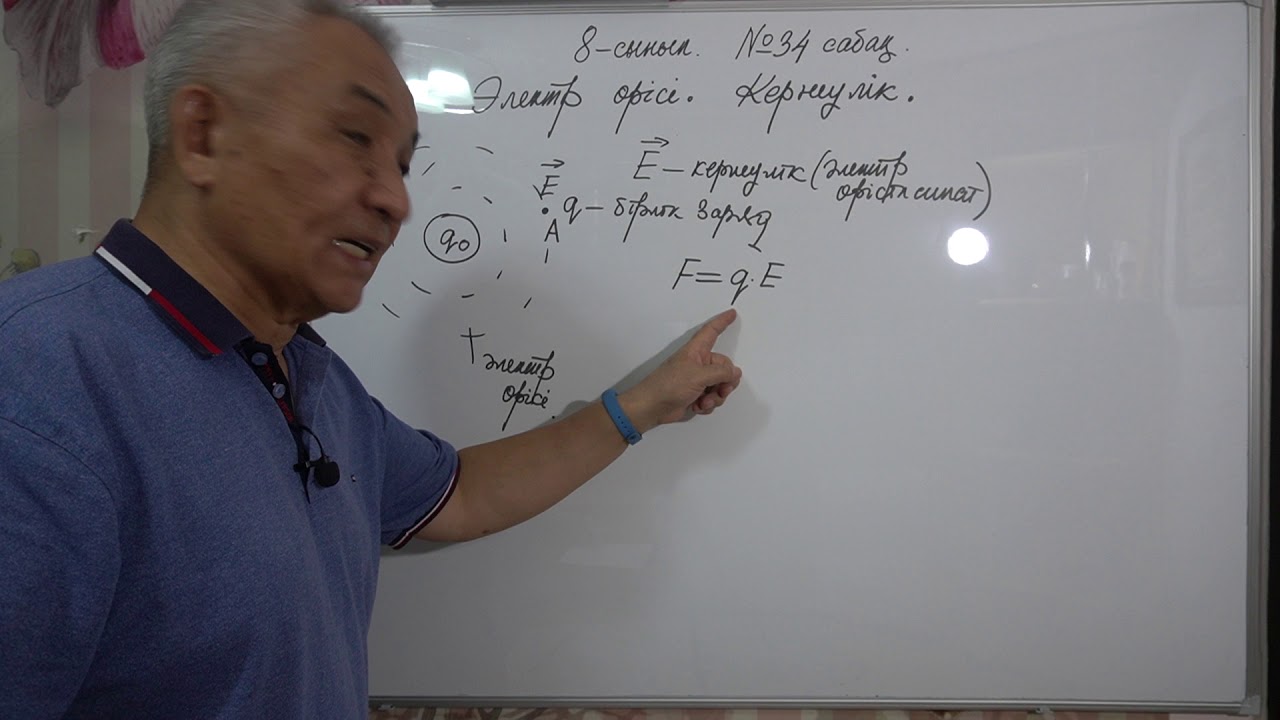 8-сынып. №34 сабақ.
Электр өрісі. Кернеулік.
E – кернеулік (электр
өрісін сипат)
E
q – бірлік заряд
A
q₀
F = q·E
электр
өрісі.